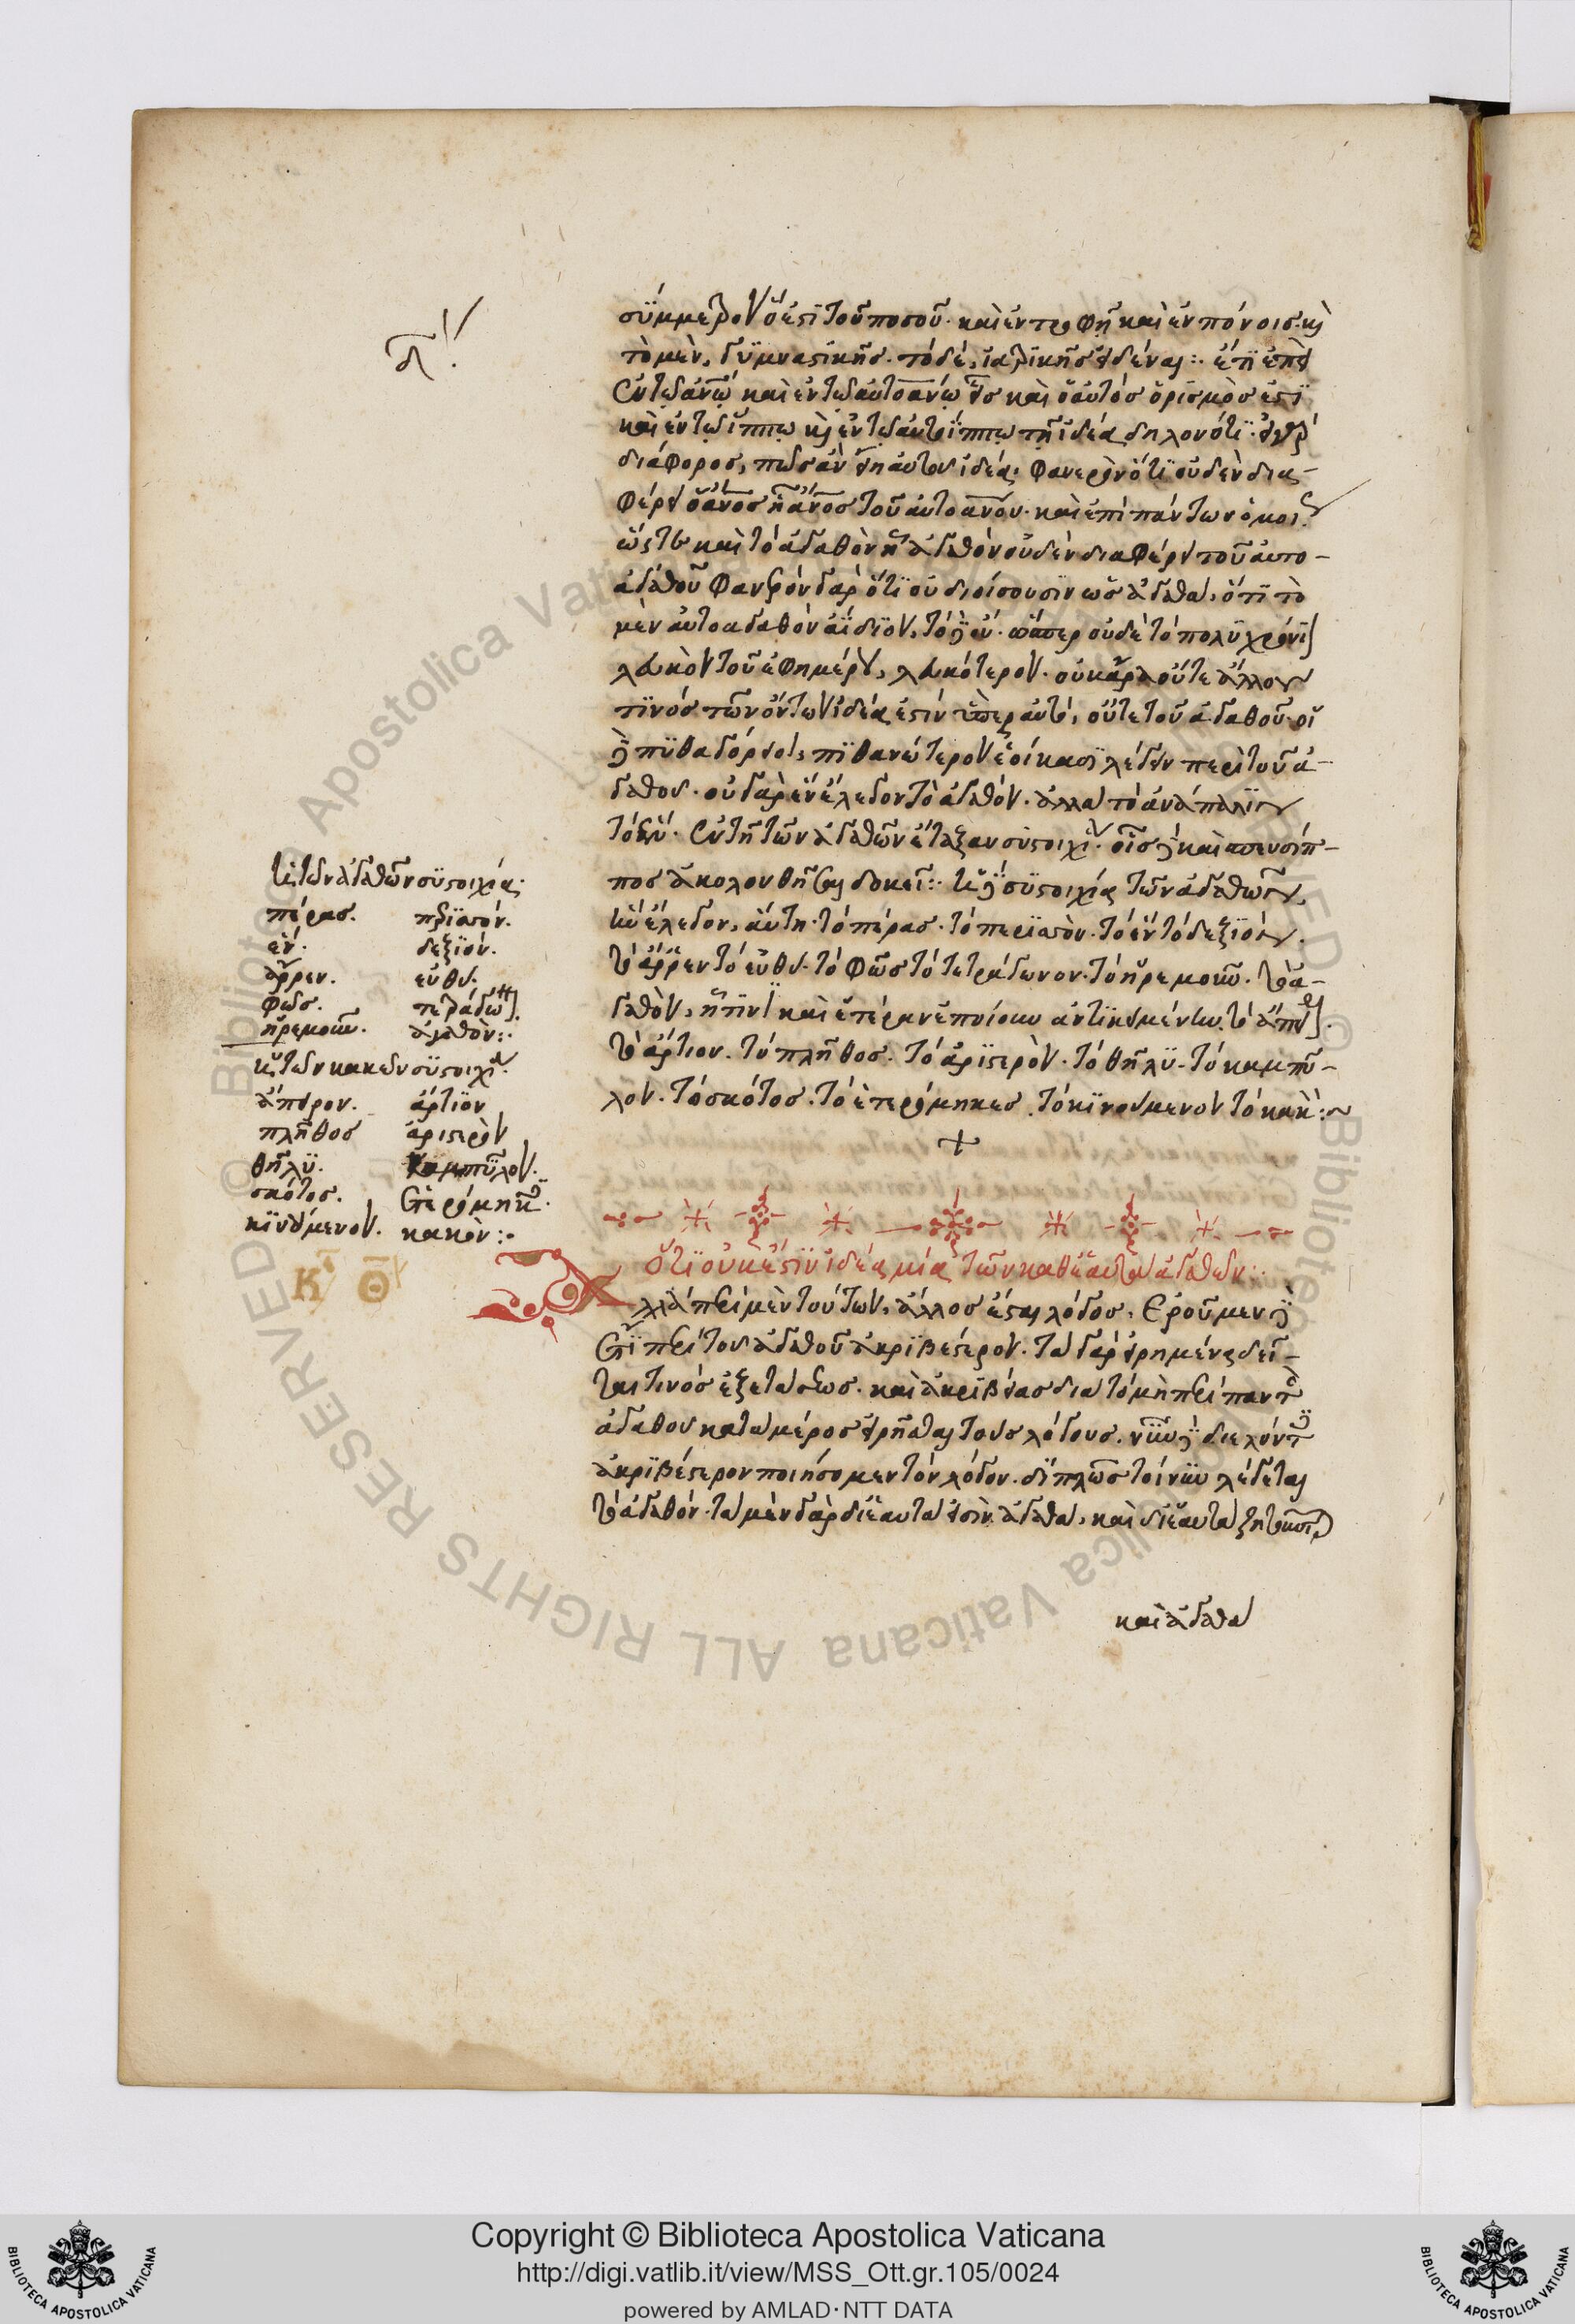 σύμμετρον ὅ ἐστι τοῦ ποσοῦ. καὶ ἐν τροφῇ καὶ ἐν πόνοις. κ̀
τὸ μὲν, γυμναστικῆς. τὸ δέ, ἰατρικῆς εἰδέναι:. ἔτι ἐπεὶ
ἐν τῷ ἀν̅ῳ καὶ ἐν τῷ αὐτοαν̅ῳ εἷς καὶ ὁ αὐτὸς ὁρισμὸς ἐστὶ
καὶ ἐν τῷ ἵππῳ κ̀ ἐν τῷ αὐτοΐππῳ τῇ ἰδέᾳ δηλονότι.
διάφορος, πῶς ἂν εἴη αὐτοῦ ἰδέα; φανερὸν ὅτι οὐδὲν δια-
φέρει ὁ ἄν̅ος ᾗ ἄν̅ος τοῦ αὐτοαν̅ου. καὶ ἐπὶ πάντων ὁμοί.
ὥστε καὶ τὸ ἀγαθὸν ᾗ ἀγαθὸν οὐδὲν διαφέρει τοῦ αὐτο-
αγάθου φανερὸν γὰρ ὅτι οὐ διοίσουσιν ὡς ἀγαθα, ὅτι τὸ
μὲν αὐτοαγαθὸν ἀΐδιον, τὸ δ̀ οὔ. ὥσπερ οὐδὲ τὸ πολυχρόνι
λευκὸν τοῦ ἐφημέρου, λευκότερον. οὐκ ἄρα οὔτε ἄλλου
τινός τῶν ὄντων ἰδέα ἐστὶν ὑπὲρ αὐτὸ, οὔτε τοῦ ἀγαθοῦ. οἱ
δ̀ πυθαγόρειοι, πιθανώτερον ἐοίκασι λέγειν περὶ τοῦ ἀ-
γαθοῦ. οὐ γὰρ ἓν ἔλεγον τὸ ἀγαθόν. ἀλλὰ τὸ ἀνάπαλιν
τὸ ἕν. ἐν τῇ τῶν ἀγαθῶν ἔταξαν συστοιχί. οἷς δ̀ καὶ σπευσίπ-
πος ἀκολουθῆσαι δοκεῖ:. ἡ δ̀ συστοιχία τῶν ἀγαθῶν,
ἣν ἔλεγον, αὕτη. τὸ πέρας. τὸ περισσὸν. τὸ ἓν τὸ δεξιὸν.
τὸ ἄρρεν τὸ εὐθὺ. τὸ φῶς τὸ τετράγωνον. τὸ ἠρεμοῦν. τὸ ἀ-
γαθὸν, ᾗτινι καὶ ἑτέραν ἐποίουν ἀντικειμένην. τὸ ἄπειρ.
τὸ ἄρτιον. τὸ πλῆθος. τὸ ἀριστερὸν. τὸ θῆλυ. τὸ καμπύ-
λον. τὸ σκότος. τὸ ἑτερόμηκες. τὸ κινούμενον τὸ κακὸ:~
τῶν ἀγαθῶν συστοιχία;
πέρας. περισσόν.
ἕν. δεξιόν.
ἄρρεν. εὐθυ.
φῶς. τετράγων.
ἠρεμοῦν. ἀγαθὸν:.
τῶν κακῶν συστοιχί.
ἄπειρον. ἄρτιον
πλῆθος ἀριστερὸν
θῆλυ. καμπύλον.
σκότος. ἑτερόμηκ.
κινούμενον. κακὸν:.
Κ Θ
ὅτι οὐκ ἔστιν ἰδέα μία τῶν καθ' ἑαυτὰ ἀγαθῶν:.
Ἀλλὰ περὶ μὲν τούτων, ἄλλος ἔσται λόγος. ἐροῦμεν δ̀
ἔτι περὶ τοῦ ἀγαθοῦ ἀκριβέστερον. τὰ γὰρ εἰρημένα δεῖ-
ται τινὸς ἐξετάσεως. καὶ ἀκριβείας διὰ τὸ μὴ περὶ παντὸς
ἀγαθοῦ κατὰ μέρος εἰρῆσθαι τοὺς λόγους. νῦν δ̀ διελόντ
ἀκριβέστερον ποιήσομεν τὸν λόγον. διπλῶς τοίνυν λέγεται
τὸ ἀγαθόν. τὰ μὲν γὰρ δι' ἑαυτὰ εἰσὶν ἀγαθα, καὶ δι' ἑαυτὰ ζητοῦνται
καὶ ἀγαθὰ
Copyright © Biblioteca Apostolica Vaticana
http://digi.vatlib.it/view/MSS_Ott.gr.105/0024
powered by AMLAD·NTT DATA